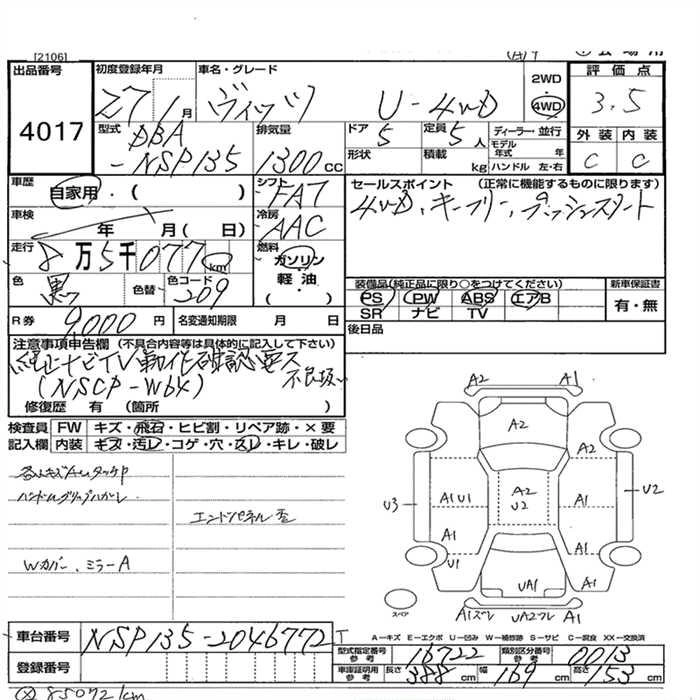 [2106]
出品番号
4017
初度登録年月
27年1月
車名・グレード
ヴィッツ U-4WD
2WD
4WD
評価点
3.5
外装 内装
C C
型式
DBA
-NSP135
排気量
1300cc
ドア 5
定員 5人
形状
積載 kg
ディーラー・並行
モデル年式 年
ハンドル 左・右
車歴
自家用・( )
シフト FAT
車検
年 月( 日)
冷房 AAC
走行
8万5千077km
燃料
ガソリン
軽油
・( )
色 黒
色替
色コード 209
R券 9,000円
名変通知期限 月 日
セールスポイント (正常に機能するものに限ります)
4WD、キーフリー、プッシュスタート
装備品(純正品に限り○をつけてください)
PS PW ABS エアB
SR ナビ TV
新車保証書
有・無
後日品
注意事項申告欄(不具合内容等は具体的に記入して下さい)
純正ナビTV動作確認要ス
(NSCP-W64)
修復歴 有 (箇所 )
検査員記入欄
FW キズ・飛石・ヒビ割・リペア跡・×要
内装 キズ・汚レ・コゲ・穴・スレ・キレ・破レ
ハンドルグリップハガレ
エンドパネル歪
Wカバー、ミラーA
A2 A1
A2
A2
U3
A1U1
A2
U2
A1
U2
A1
U1
A1
UA1
A1
スペア
A1ズレ UA2フレ A1
A-キズ E-エクボ U-凹み W-補修跡 S-サビ C-腐食 XX-交換済
車台番号 NSP135-2046772
登録番号
型式指定番号 参考 16722
類別区分番号 参考 0013
車庫証明用 参考
長さ 388cm
幅 169cm
高さ 153cm
85072km